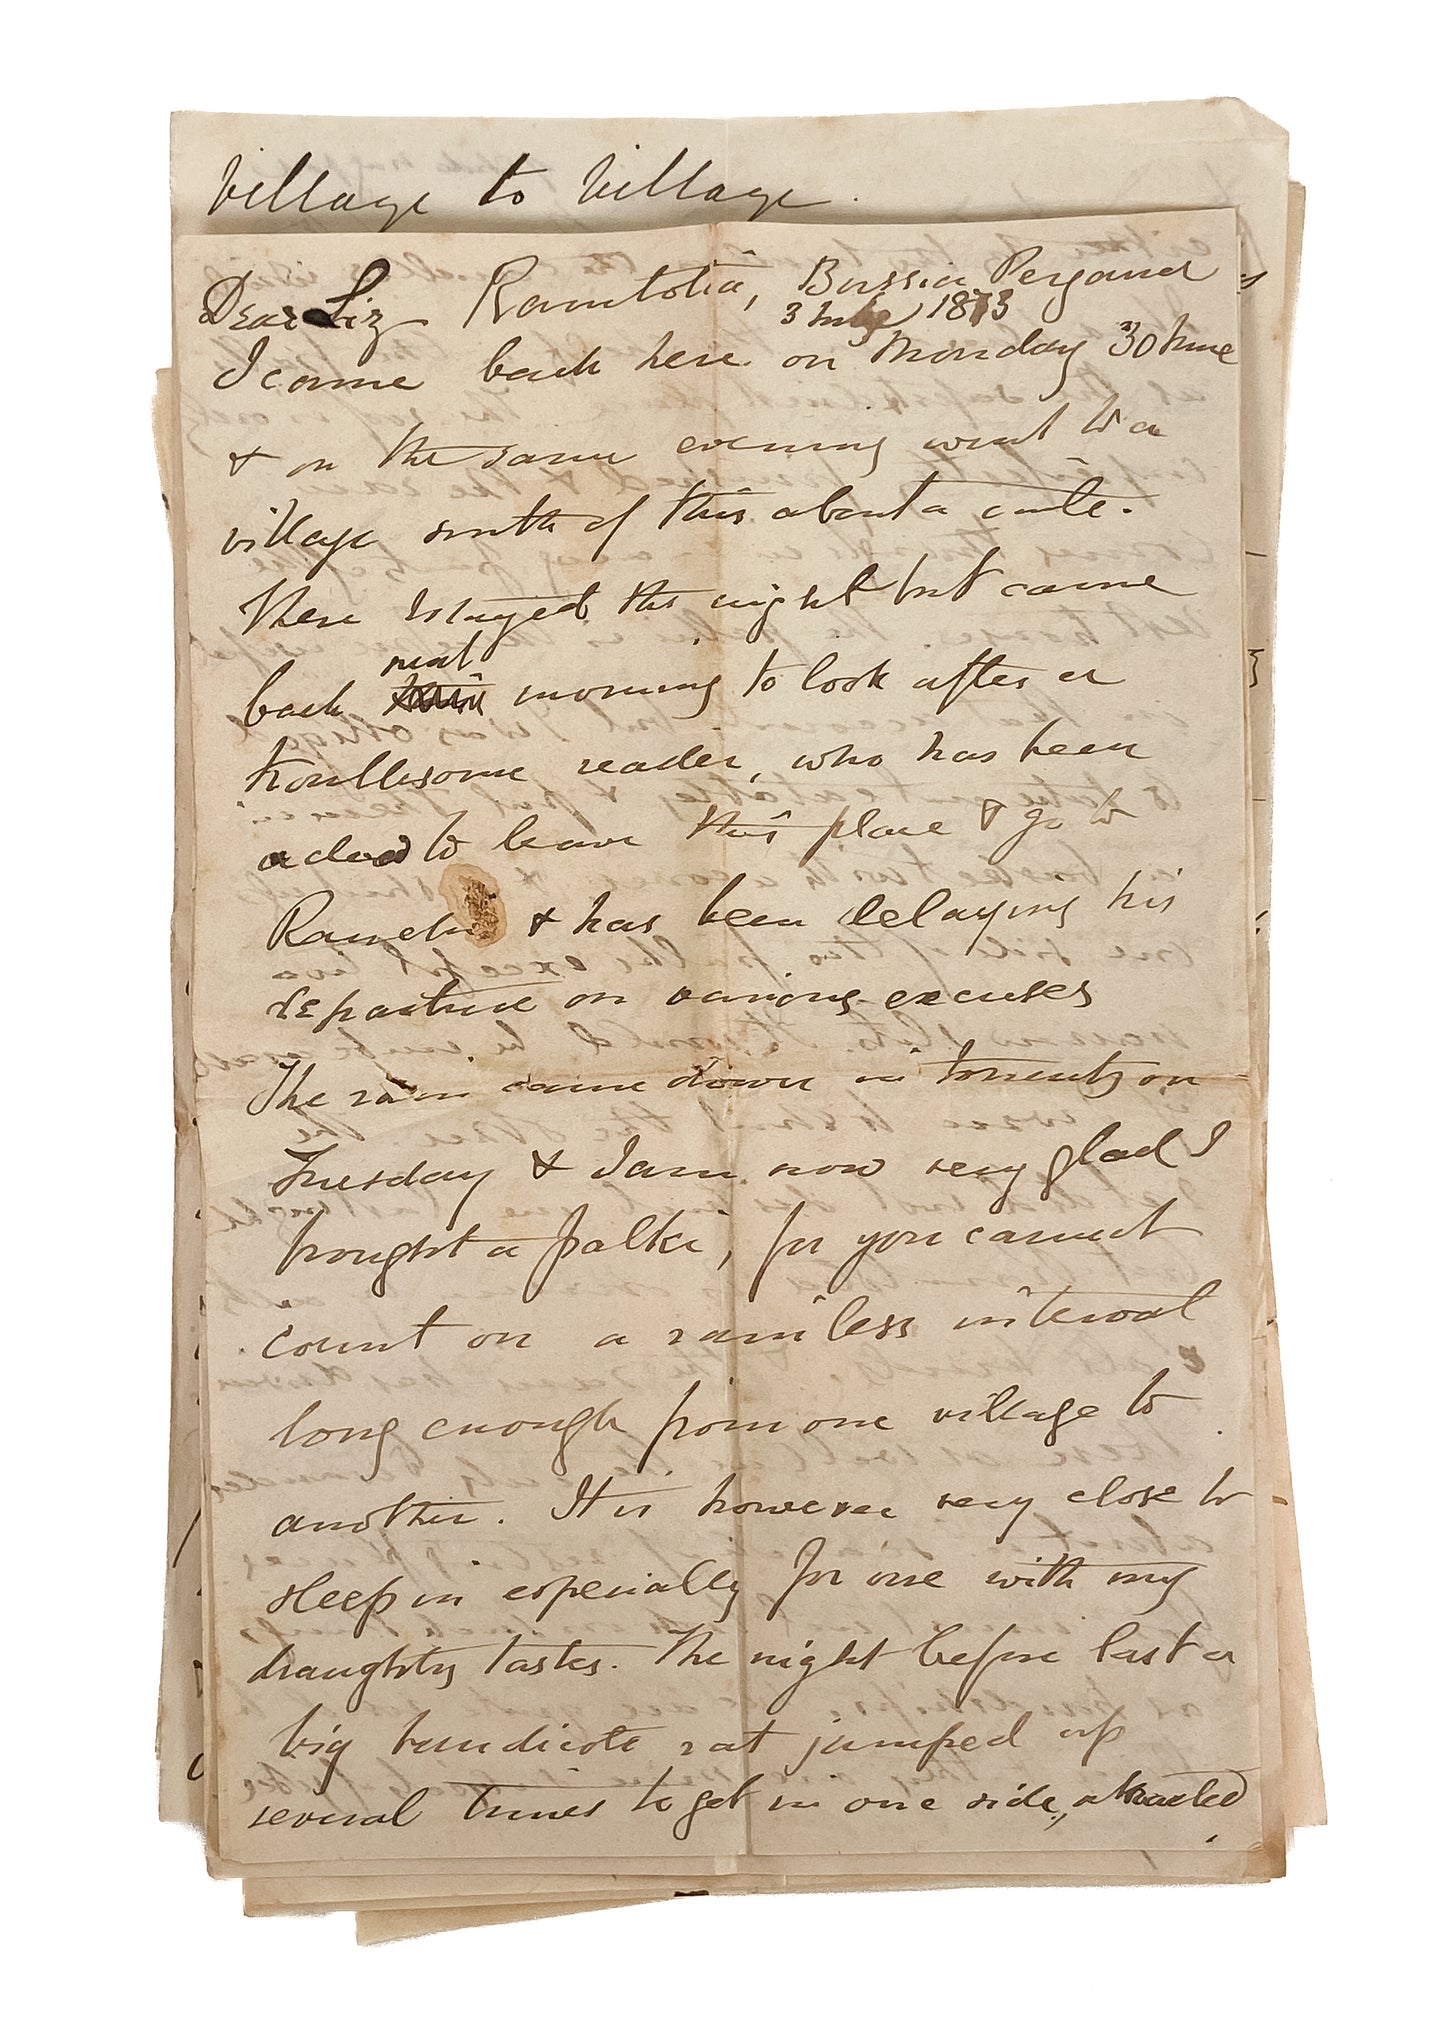 Village to Village.
Dear Liz Ramtolia, Bussia Pergana
3 July 1873
I came back here on Monday 30 June
& on the same evening went to a
village south of this about a mile.
There I stayed the night but came
next
back morning to look after a
troublesome reader, who has been
to leave this place & go to
& has been delaying his
departure on various excuses
The rain came down in torrents on
Tuesday & I am now very glad I
bought a palki, for you cannot
count on a rainless interval
long enough from one village to
another. It is however very close to
sleep in especially for one with my
draughty tastes. The night before last a
big bandicote rat jumped up
several times to get in one side, attracted